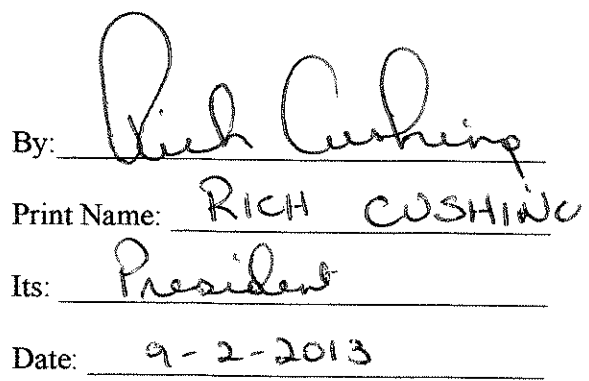 By: Rich Cushing
Print Name: RICH CUSHING
Its: President
Date: 9-2-2013